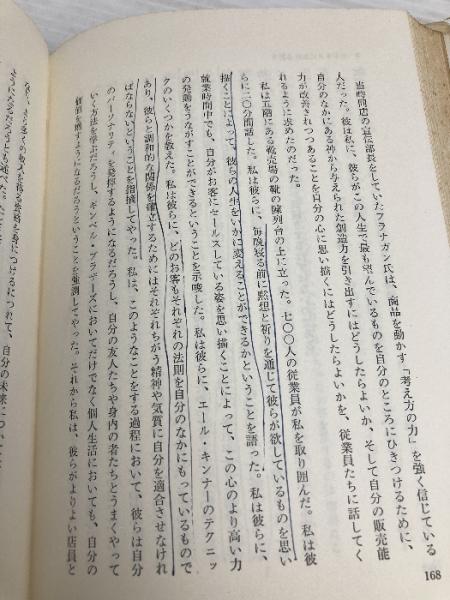 当時同店の宣伝部長をしていたフラナガン氏は、商品を動かす「考え方の力」を強く信じている
人だった。彼は私に、彼らがこの人生で最も望んでいるものを自分のところにひきつけるために、
自分のなかにある神から与えられた創造力を引き出すにはどうしたらよいか、そして自分の販売能
力が改善されつつあることを自分の心に思い描くにはどうしたらよいかを、従業員たちに話してく
れるように求めたのだった。
私は五階にある靴売場の靴の陳列台の上に立った。七〇〇人の従業員が私を取り囲んだ。私は彼
らに二〇分間話した。私は彼らに、毎晩寝る前に黙想と祈りを通じて彼らが欲しているものを思い
描くことによって、彼らの人生をいかに変えることができるかということを語った。私は彼らに、
就業時間中でも、自分がお客にセールスしている姿を思い描くことによって、この心のより高い力
の発動をうながすことができるということを示唆した。私は彼らに、エール・キンナーのテクニッ
クのいくつかを教えた。私は彼らに、どのお客もそれぞれの法則を自分のなかにもっているもので
あり、彼らと調和的な関係を確立するためにはそれぞれちがう精神や気質に自分を適合させなけれ
ばならないということを指摘してやった。私は、このようなことをする過程において、彼らは自分
のパーソナリティを発揮するようになるだろうし、自分の友人たちや身内の者たちとうまくやって
いく方法を学ぶだろうし、ギンベル・ブラザーズにおいてだけでなく個人生活においても、自分の
価値を増すようになるだろうということを強調してやった。それから私は、彼らがよりよい店員と
168